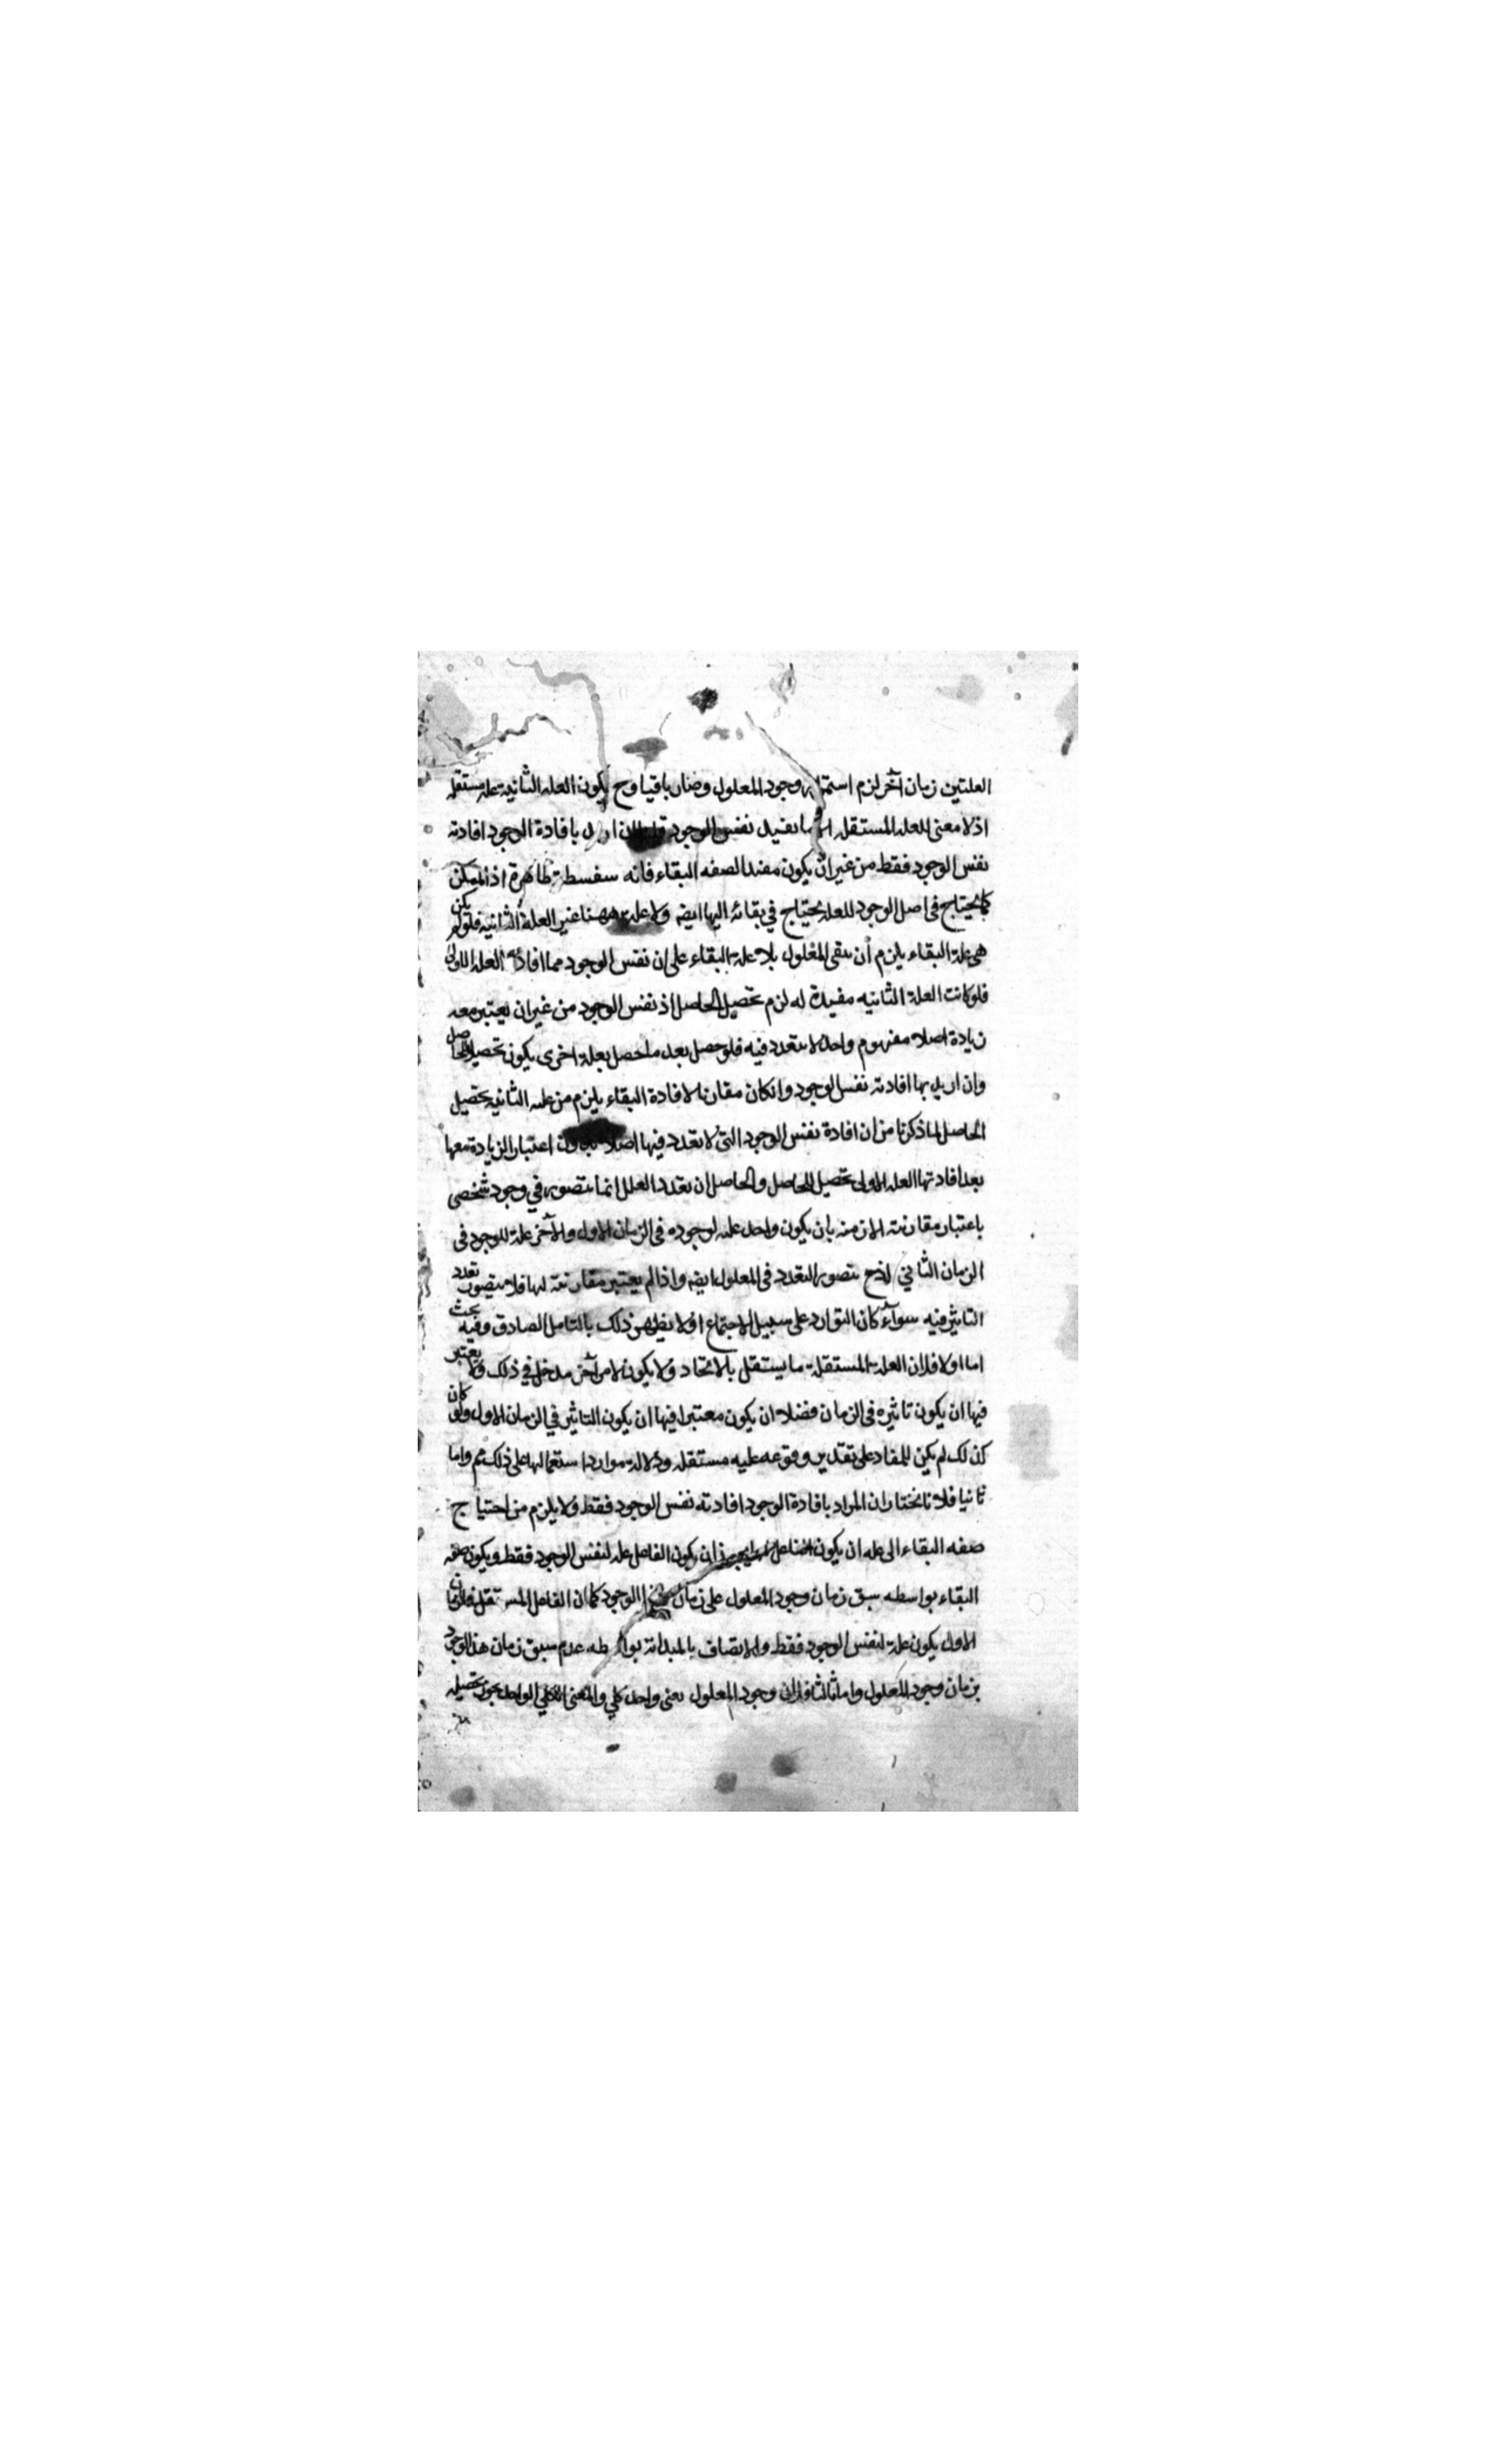 العلتين زمان آخر لزم استمرار وجود المعلول وصار باقيا وح يكون العله الثانية عله مستقله
اذ لا معنى للعله المستقله الا ما تفيد نفس الوجود بافادة الوجود افادته
نفس الوجود فقط من غير ان يكون مفيدا لصفه البقاء فانه سفسطة ظاهرة اذ الممكن
كما يحتاج فى اصل الوجود للعله يحتاج في بقائه اليها ايضه ولا علة ههنا غير العلة الثانيه فلو لم يكن
هى علة البقاء يلزم أن يبقى المعلول بلا علة البقاء على ان نفس الوجود مما افادته العله الاولى
فلو كانت العلة الثانيه مفيدة له لزم تحصيل الحاصل اذ نفس الوجود من غير ان يعتبر معه
زيادة اصلا مفهوم واحد لا تعدد فيه فلو حصل بعد ما حصل بعلة اخرى يكون تحصيلا للحاصل
وان اريد بها افادته نفس الوجود وان كان مقارنا لافادة البقاء يلزم من عله الثانيه تحصيل
الحاصل لما ذكرنا من ان افادة نفس الوجود التى لا تعدد فيها اصلا بدون اعتبار الزيادة معها
بعد افادتها العله الاولى تحصيل للحاصل والحاصل ان تعدد العلل انما يتصور في وجود شخصى
باعتبار مقارنته الازمنه بان يكون واحد عله لوجوده فى الزمان الاول والآخر علة للوجود فى
الزمان الثاني اذ ح يتصور التعدد فى المعلول ايضه واذا لم يعتبر مقارنته لها فلا يتصور تعدد
التاثير فيه سوآء كان التوارد على سبيل الاجتماع اولا يظهر ذلك بالتامل الصادق وفيه بحث
اما اولا فلان العلة المستقلة ما يستقل بالايجاد ولا يكون لامر آخر مدخل في ذلك ولا يعتبر
فيها ان يكون تاثيره فى الزمان فضلا ان يكون معتبرا فيها ان يكون التاثير في الزمان الاول ولو كان
كذلك لم يكن للمفاد على تقدير وقوعه عليه مستقله ودلالة موارد استعمالها على ذلك مم واما
ثانيا فلانا نختار ان المراد بافادة الوجود افادته نفس الوجود فقط ولا يلزم من احتياج
صفه البقاء الى عله ان يكون الفاعل ان يكون الفاعل عله لنفس الوجود فقط ويكون صفه
البقاء بواسطه سبق زمان وجود المعلول على زمان هذا الوجود كما ان الفاعل المستقل فى الزمان
الاول يكون علة لنفس الوجود فقط والاتصاف بالمبدائة بواسطه عدم سبق زمان هذا الوجود
بزمان وجود المعلول واما ثالثا فلان وجود المعلول معنى واحد كلي والمعنى الكلي الواحد يجوز تحصيله